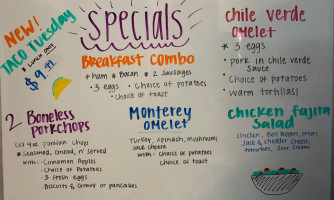 NEW!
TACO Tuesday
& Lunch Only
$9.99
Specials
Breakfast Combo
* Ham & Bacon & 2 Sausages
• 3 eggs • Choice of potatoes
• Choice of toast
chile verde
omelet
* 3 eggs
• pork in chile verde
Sauce
• Choice of Potatoes
• Warm tortillas!
2 Boneless
porkchops
(2) 4oz Chops
* Seasoned, Grilled, n' Served
with: • Cinnamon Apples
• Choice of Potatoes
• 3 fresh eggs
Biscuits & Gravy or pancakes
Monterey
Omelet
Turkey, spinach, mushroom,
Jack cheese.
with: • Choice of Potatoes
Choice of toast
chicken fajita
Salad
Chicken, Bell Peppers, onion,
Jack & cheddar Cheese,
tomatoes, Sour Cream